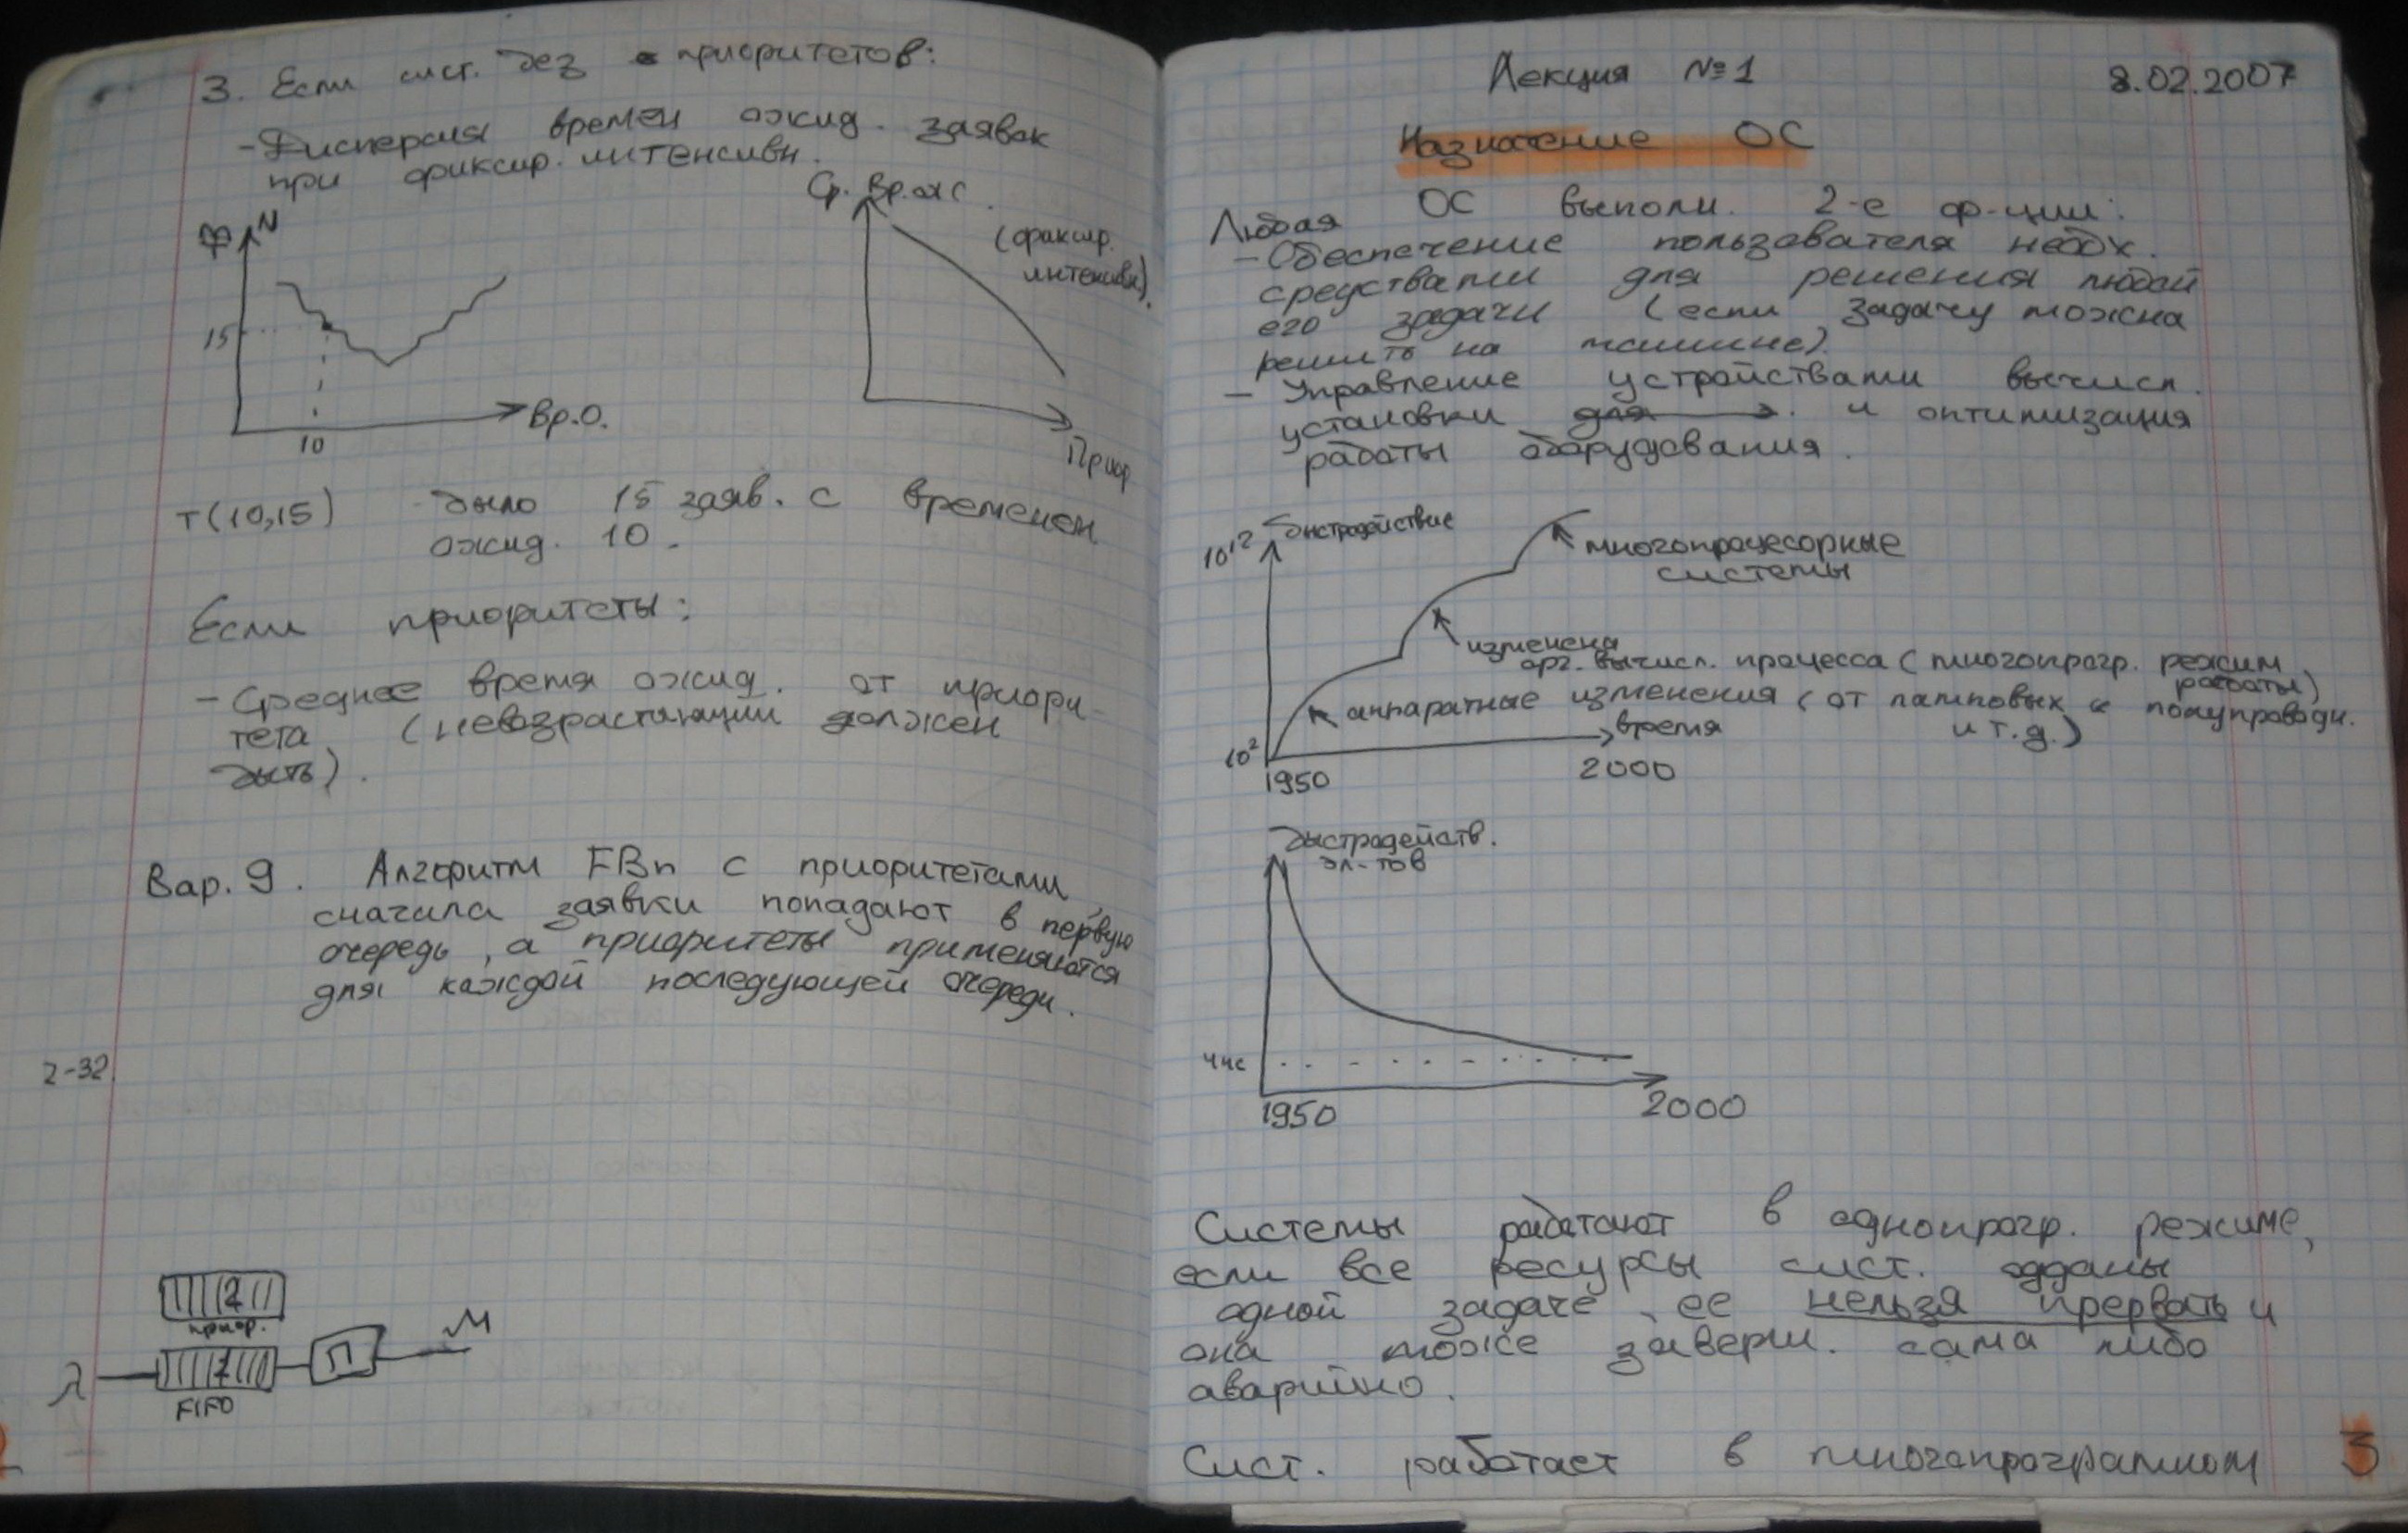 3. Если сист. без приоритетов:
- Дисперсия времен ожид. заявок
при фиксир. интенсивн.
N
15
10
Вр.О.
Ср. Вр.ож.
(фиксир.
интенсивн).
Приор
т(10,15) было 15 заяв. с временем
ожид. 10.
Если приоритеты:
- Среднее время ожид. от приори-
тета (невозрастающий должен
быть).
Вар. 9. Алгоритм FBn с приоритетами,
сначала заявки попадают в первую
очередь, а приоритеты применяются
для каждой последующей очереди.
2-32
2
приор.
λ
1
П
M
FIFO
Лекция №1 8.02.2007
Назначение ОС
Любая ОС выполн. 2-е ф-ции:
- Обеспечение пользователя необх.
средствами для решения любой
его задачи (если задачу можна
решить на машине).
- Управление устройствами вычисл.
установки для и оптимизация
работы оборудования.
10¹² Быстродействие
многопроцесорные
системы
изменена
орг. вычисл. процесса (многопрогр. режим
работы)
аппаратные изменения (от ламповых к полупроводн.
и т.д.)
время
10²
1950 2000
Быстродейств.
эл-тов
4нс
1950 2000
Системы работают в однопрогр. режиме,
если все ресурсы сист. отданы
одной задаче, ее нельзя прервать и
она може заверш. сама либо
аварийно.
Сист. работает в многопрограмном
3